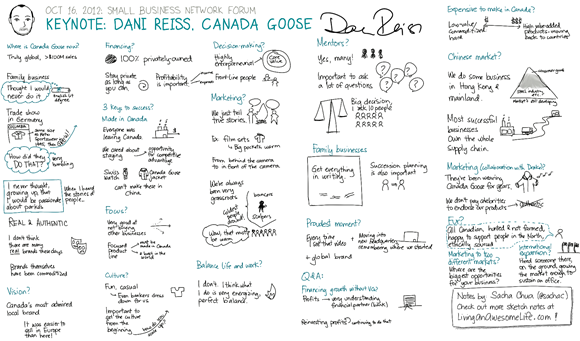 OCT 16, 2012: SMALL BUSINESS NETWORK FORUM
KEYNOTE: DANI REISS, CANADA GOOSE
Dani Reiss
Where is Canada Goose now?
Truly global,
Family business
Thought I would
never do it
Trade show
in Germany
How did they
DO THAT?
I never thought,
growing up, that
I would be passionate
about parkas.
When I heard
the stories of
people.
REAL & AUTHENTIC
I don't think
there are many
real brands these days
Brands themselves
have been commoditized
Vision?
Canada's most admired
local brand
It was easier to
sell in Europe
than here!
Financing?
100% privately-owned
Stay private
as long as
you can.
Profitability is
important
3 Keys to success?
Made in Canada
Everyone was
leaving Canada
We cared about
staying
opportunity
for competitive
advantage
Swiss
watch
Canada
Goose
Can't make these in
China
Focus!
Very good at
not buying
other businesses
Focused
product
line
made in Canada
best in the
world
Culture?
Fun, casual
Even bankers dress
down for us
Important to
get the culture
from the
beginning
Decision-making?
Highly
entrepreneurial
Front-line people
Marketing?
We just tell
true stories.
Ex. film sets
Big pockets, warm
From behind the camera
to in front of the camera
We've always
been very
grassroots
bouncers
Wow, that must
be warm.
Balance life and work?
I don't. I think what
I do is very energizing,
perfect balance.
Mentors?
Yes, many
Important to ask
a lot of questions.
Big decision,
I ask 10 people
Family businesses
Get everything
in writing.
Succession planning
is also important
Proudest moment?
Every time
I see that video
Moving into
new headquarters
remembering where we started
global brand
Q&A:
Financing growth without VCs?
Profits
very understanding
financial partner (bank)
Reinvesting profits?
continuing to do that
Expensive to make in Canada?
Low-value/
commoditized
hard
High value-added
products - moving
back to countries!
Chinese market?
We do some business
in Hong Kong &
mainland.
Most successful
businesses
Own the whole
supply chain.
They've been wearing
Canada Goose for years.
We don't pay celebrities
to endorse our products
Fur?
All Canadian, hunted & not farmed,
happy to support people in the north,
ethically sourced
Marketing to
different markets?
Where are the
biggest opportunities
for your business?
International
expansion?
Need someone there,
on the ground, growing
the market enough to
sustain an office.
Notes by Sacha Chua (@sachac)
Check out more sketch notes at
LivingAnAwesomeLife.com!